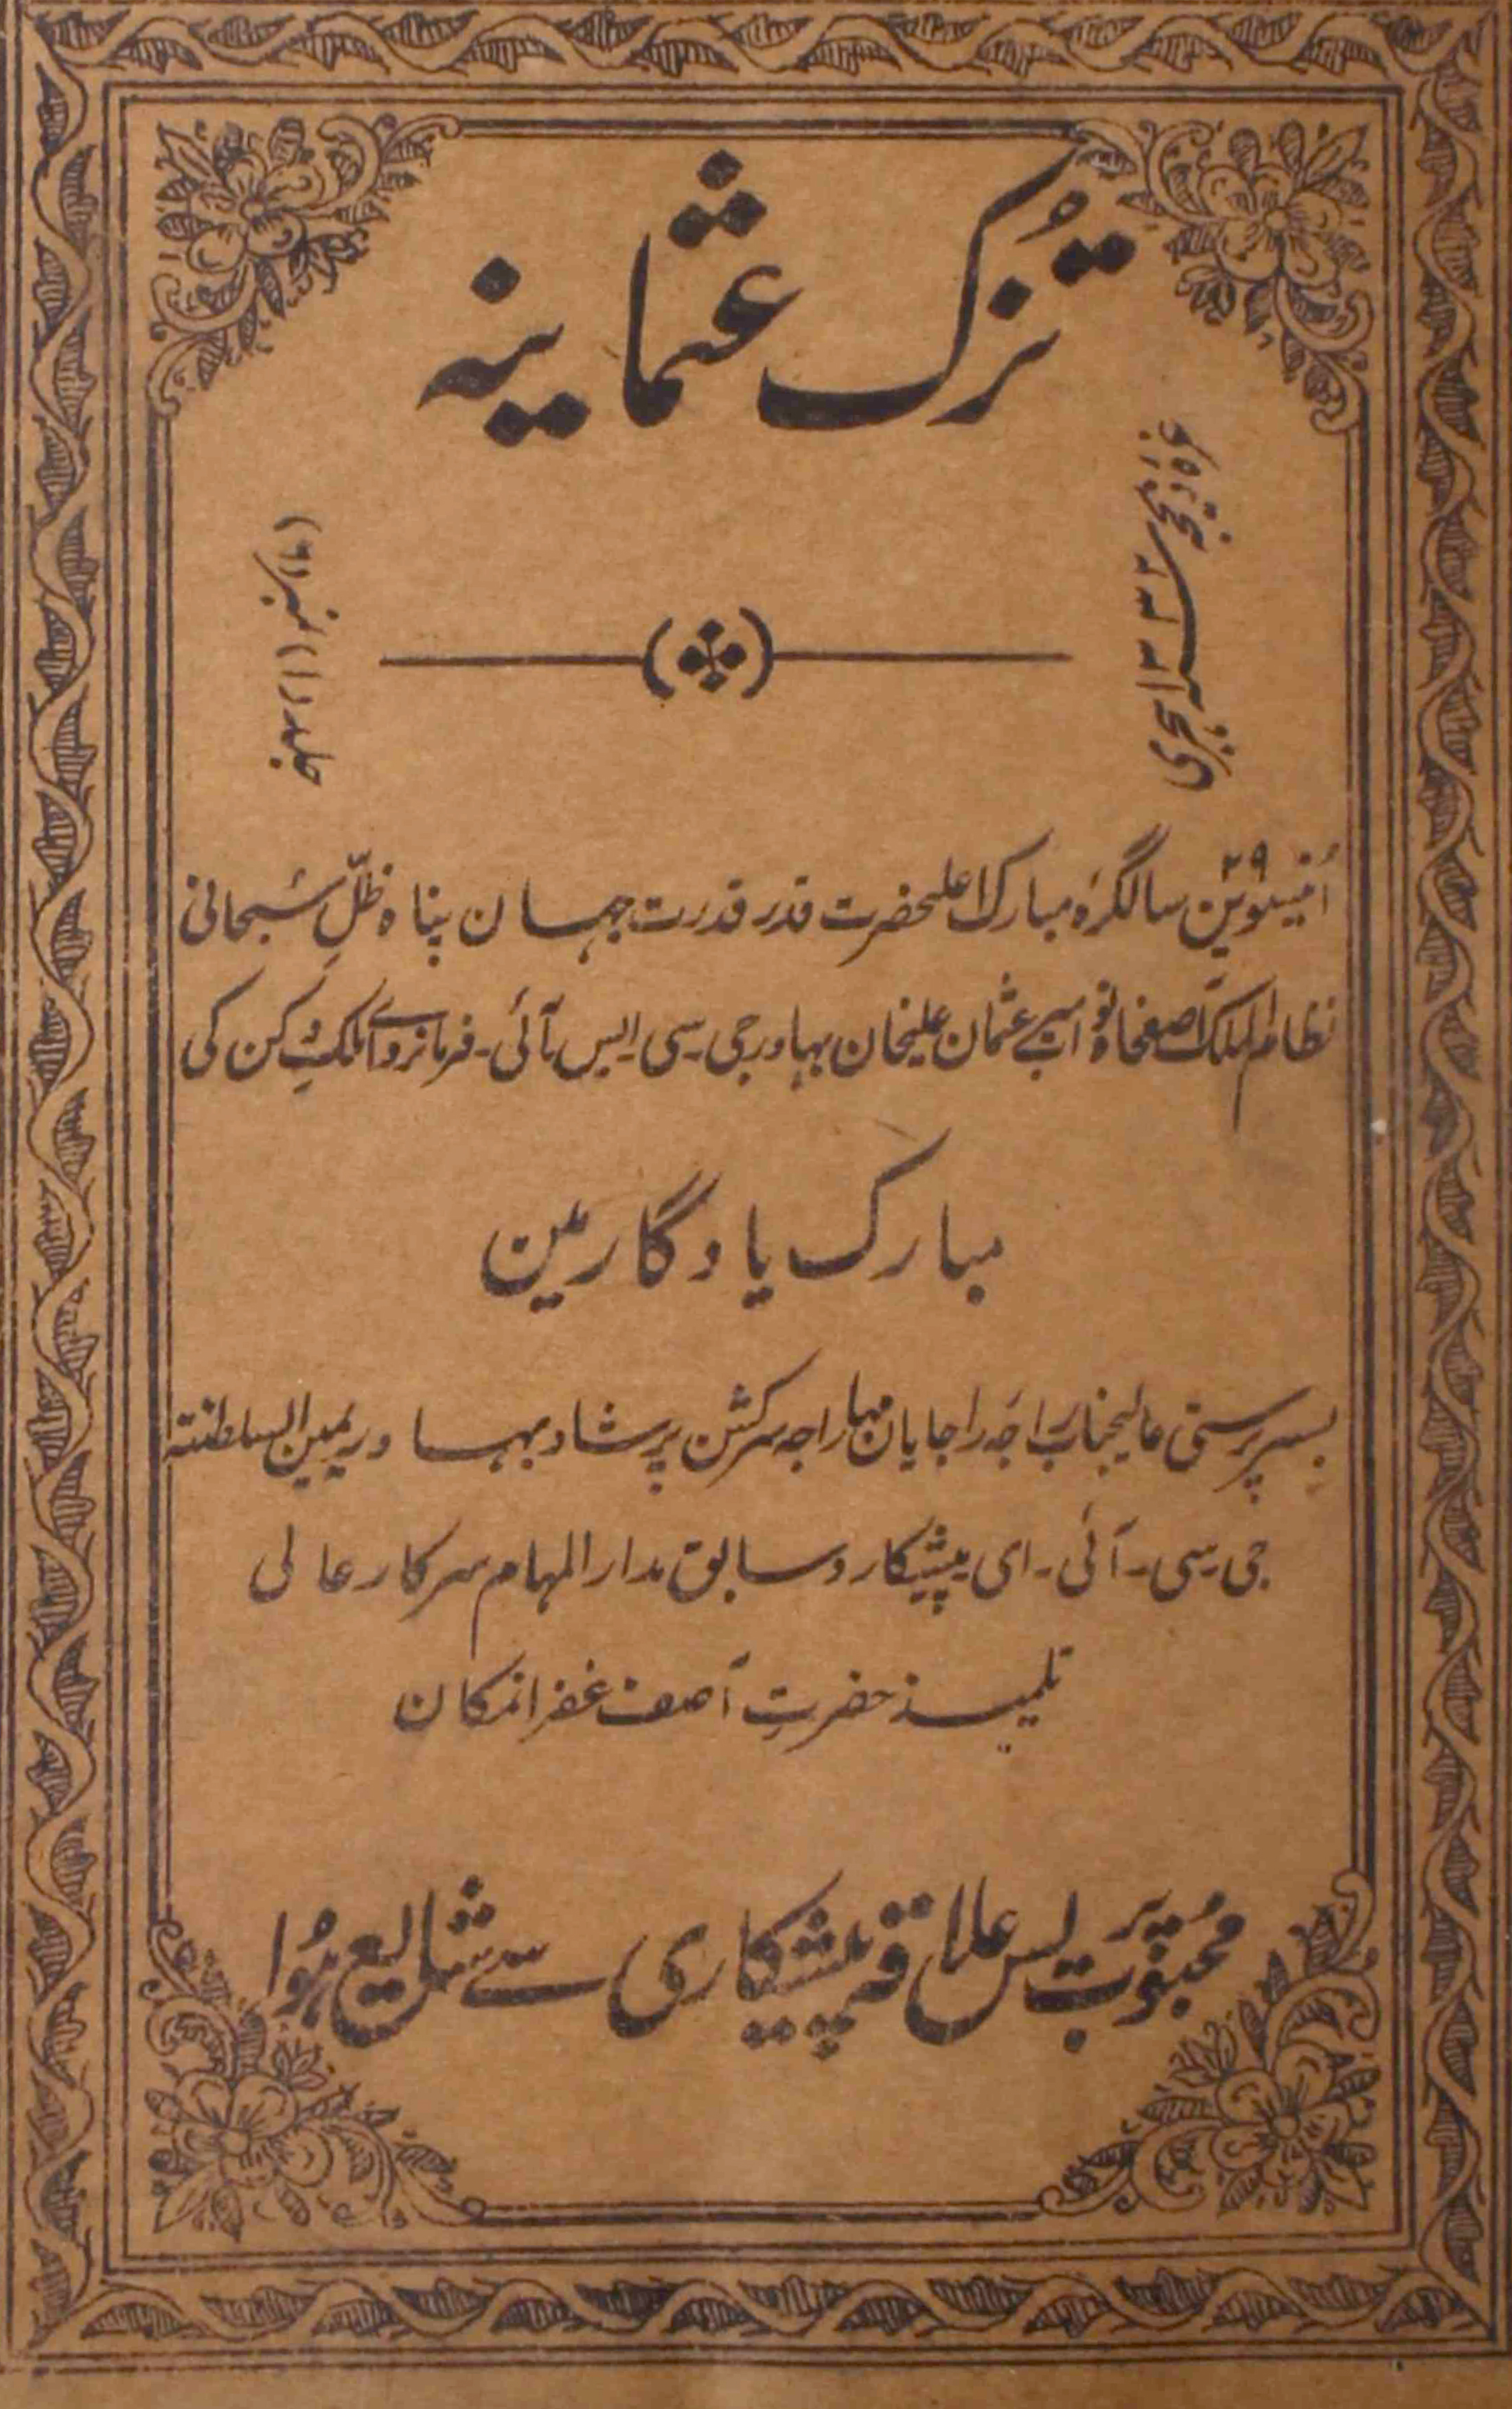 تُزک عثمانیہ
غرہ ذیحجہ سنہ ۱۳۳۲ ہجری
جلد (۱) نمبر (۶)
اُنتیسوین ۲۹ سالگرہ مبارک اعلیحضرت قدر قدرت جہان پناہ ظلِّ سُبحانی
نظام الملک آصفجاہ نواب میر عثمان علیخان بہادر جی سی ایس آئی۔ فرمانروائے ملکِ دکن کی
مبارک یادگار مین
بسرپرستی عالیجناب راجہ راجایان مہاراجہ سر کشن پرشاد بہادر یمین السلطنتہ
جی۔سی۔آئی۔ای پیشکار و سابق مدار المہام سرکار عالی
تلمیذ حضرتِ آصف غفرانمکان
محبُوب پریس علاقہ پیشکاری سے شایع ہُوا